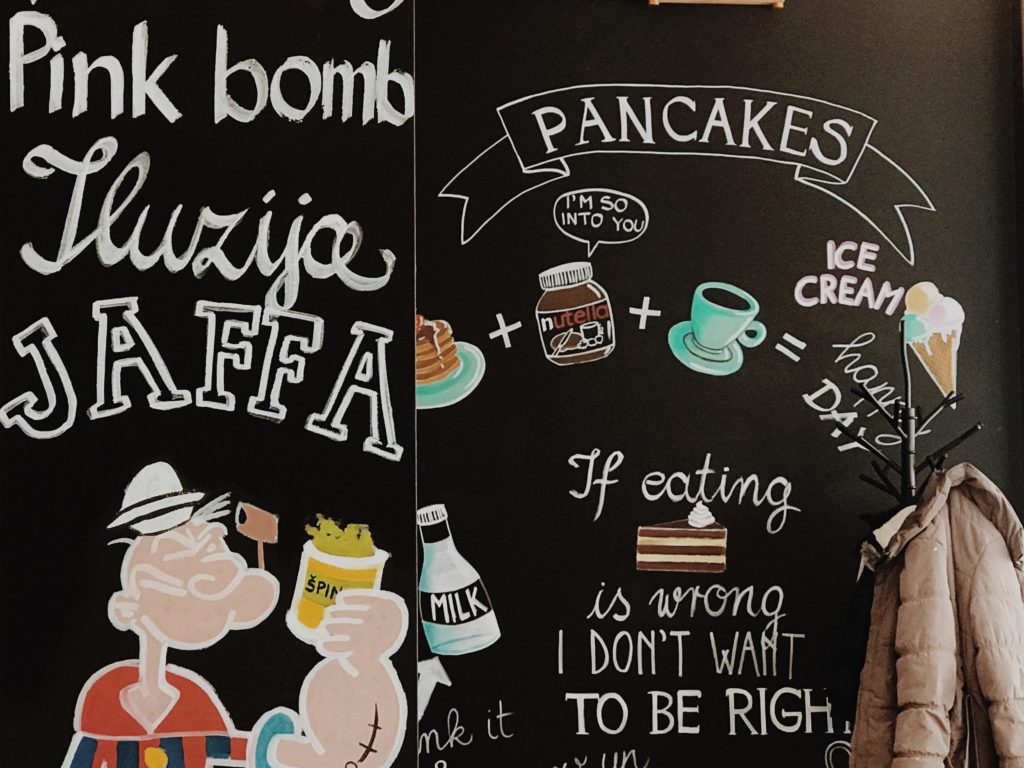 Pink bomb
Iluzija
JAFFA
ŠPIN
PANCAKES
I'M SO
INTO YOU
+ nutella + =
ICE
CREAM
MILK
If eating
is wrong
I DON'T WANT
TO BE RIGH
nk it